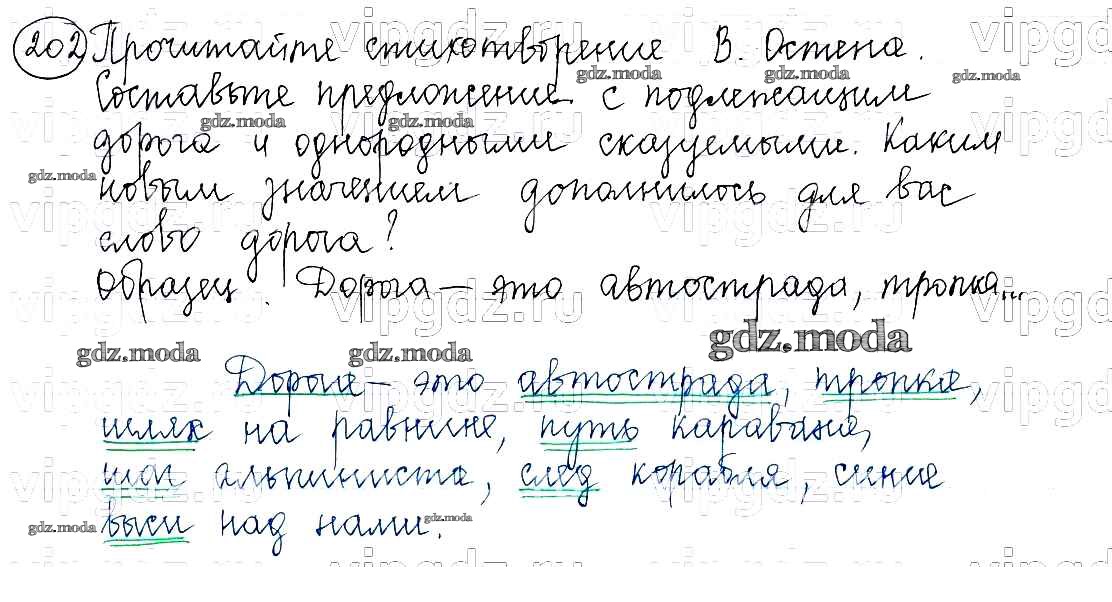 202 Прочитайте стихотворение В. Остена.
Составьте предложение с подлежащим
дорога и однородными сказуемыми. Каким
новым значением дополнилось для вас
слово дорога?
Образец. Дорога – это автострада, тропка...
Дорога – это автострада, тропка,
шлях на равнине, путь каравана,
шаг альпиниста, след корабля, синие
выси над нами.